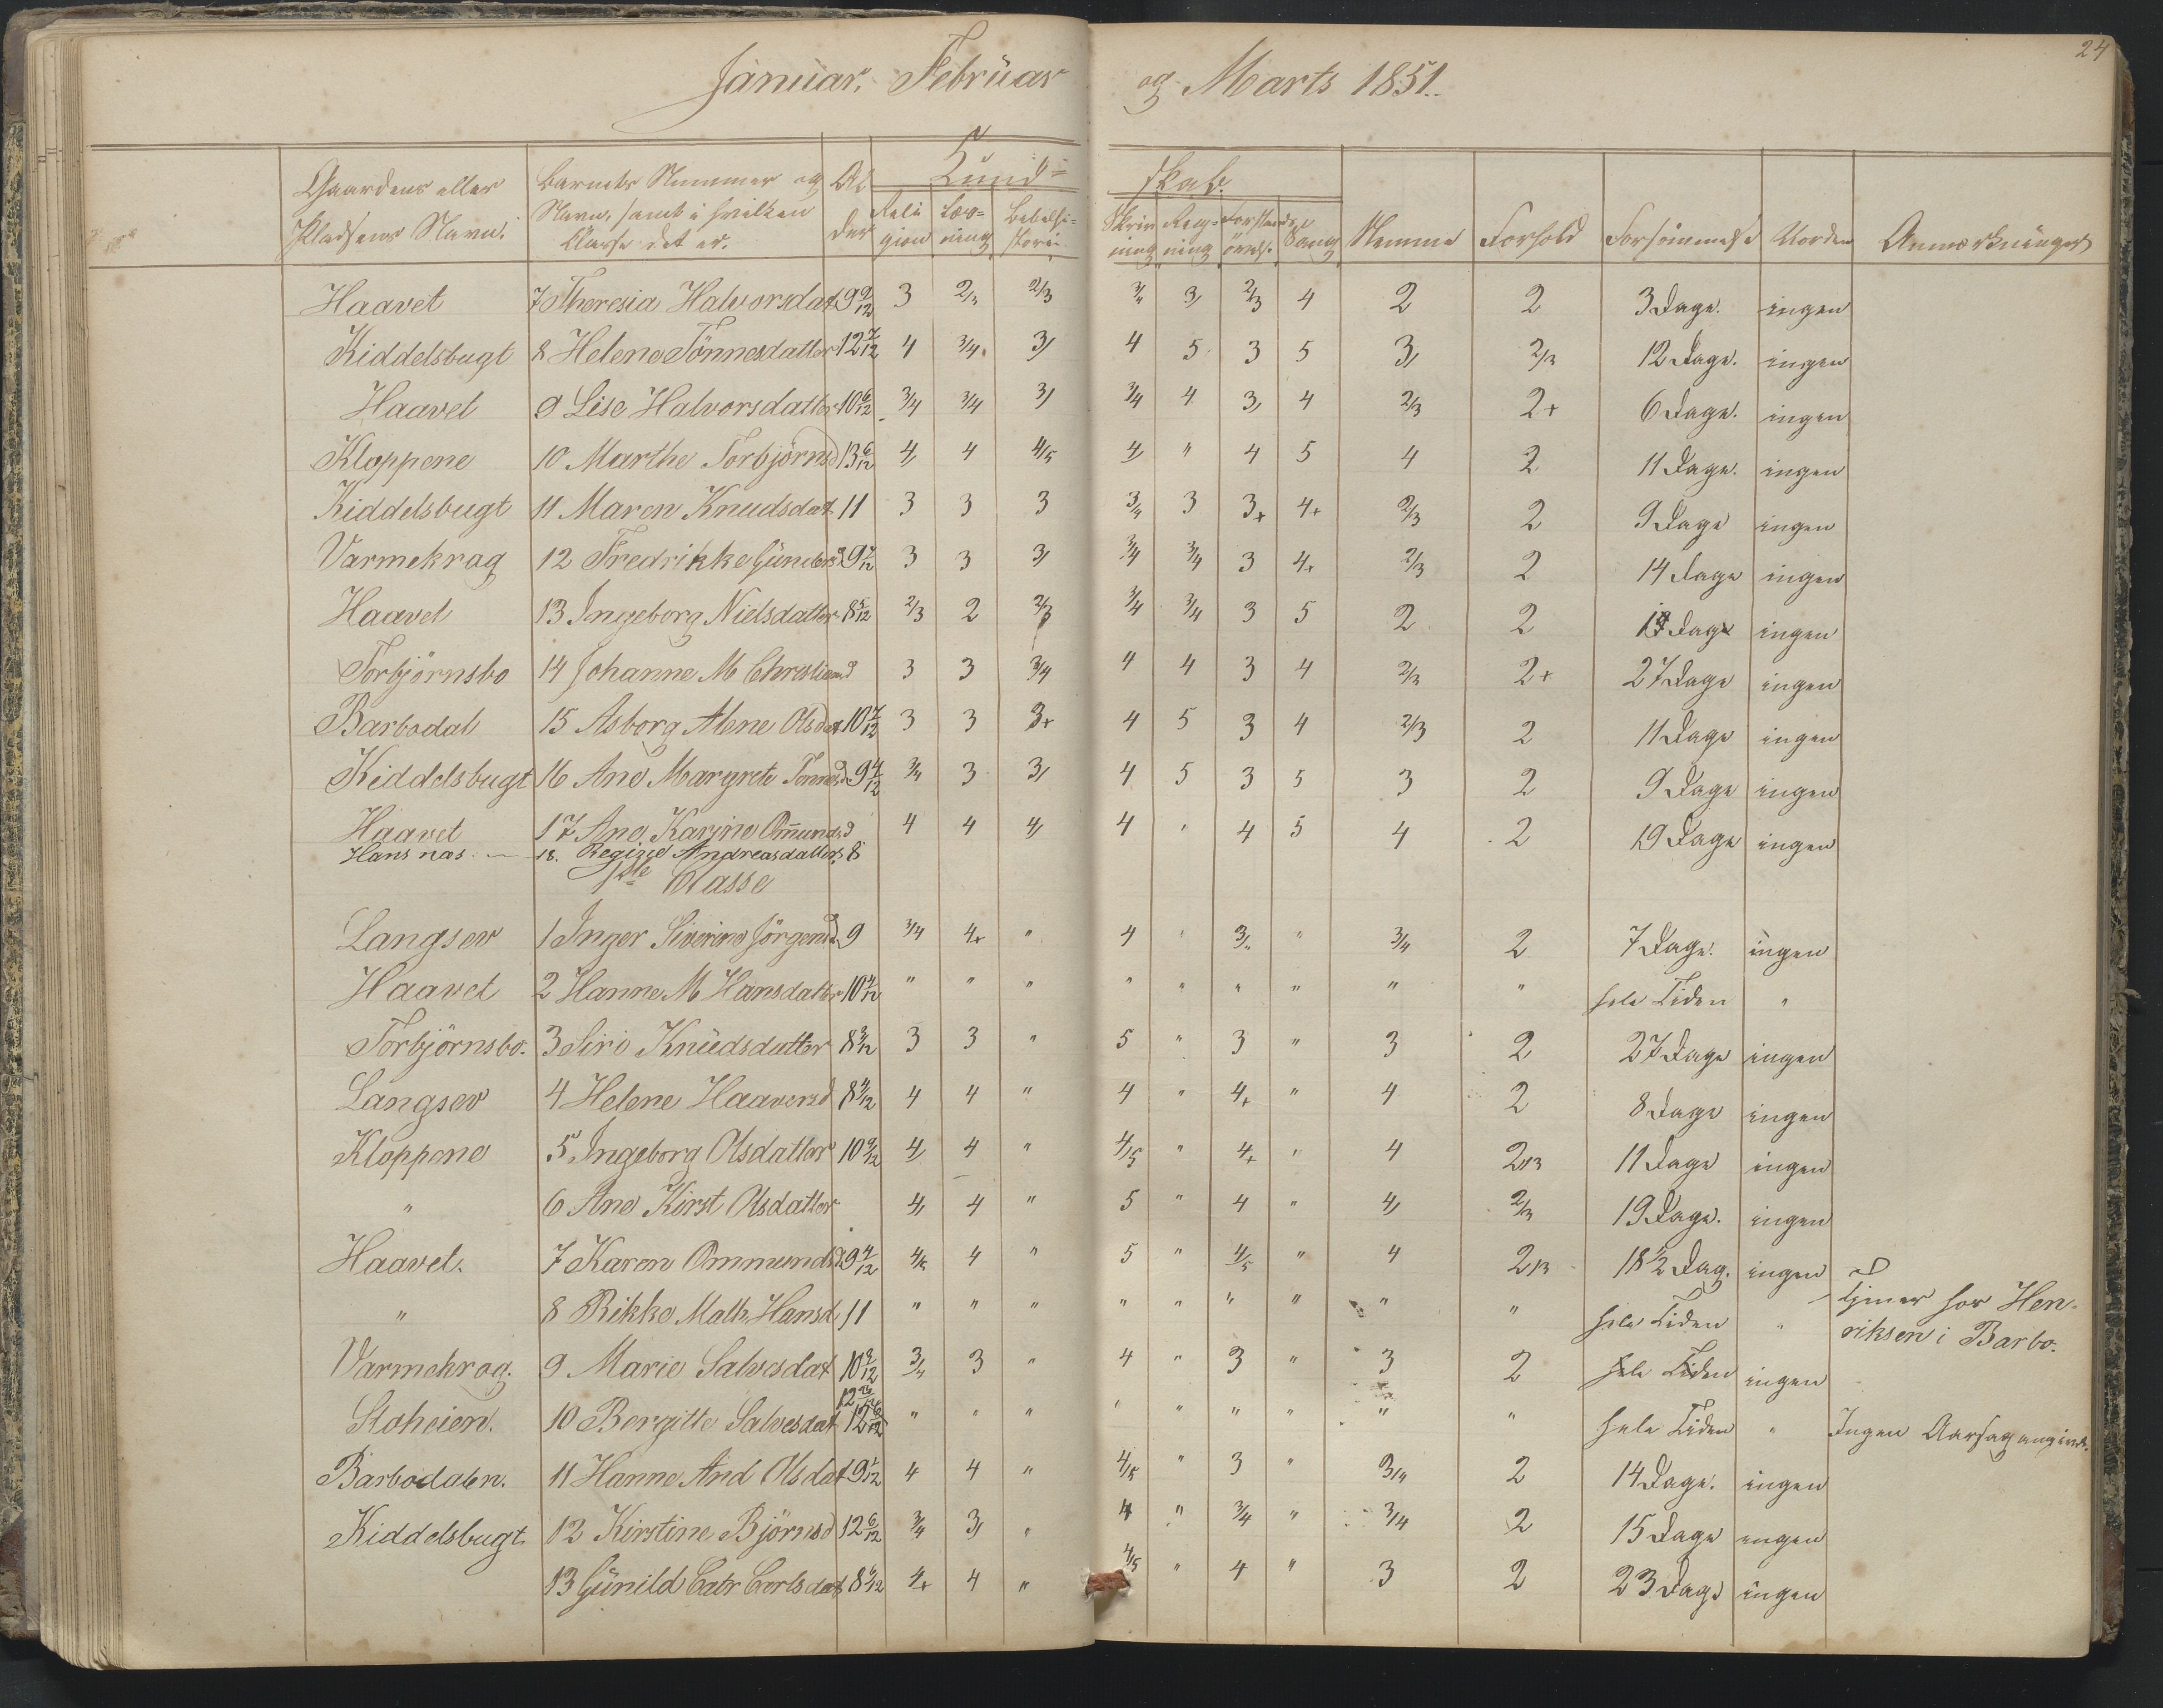 24
Januar, Februar og Marts 1851.
Gaardens eller Pladsens Navn. | Barnets Nummer og Navn, samt i hvilken Classe det er. | Alder | Kundskab. | Religion | Læsning | Bibelhistorie | Skrivning | Regning | Forstandsøvels. | Sang | Nemme | Forhold | Forsömmelse | Uorden | Anmærkninger
Haavet 7 Theresia Halvorsdat 9 9/12 3 2/3 2/3 3/4 3/ 2/3 4 2 2 3 Dage. ingen
Kiddelsbugt 8 Helene Tönnesdatter 12 7/12 4 3/4 3/ 4 5 3 5 3/ 2/3 12 Dage. ingen
Haavet 9 Lise Halvorsdatter 10 6/12 3/4 3/4 3/ 3/4 4 3/ 4 2/3 2+ 6 Dage. ingen
Kloppene 10 Marthe Torbjörnsd 13 6/12 4/ 4 4/5 4/ " 4 5 4 2 11 Dage. ingen
Kiddelsbugt 11 Maren Knudsdat 11 3 3 3 3/4 3 3+ 4+ 2/3 2 9 Dage ingen
Varmekrag 12 Fredrikke Gundersd 9 7/12 3 3 3/ 3/4 3/4 3 4+ 2/3 2 14 Dage ingen
Haavet 13 Ingeborg Nielsdatter 8 5/12 2/3 2 2/3 3/4 3/4 3 5 2 2 Dage ingen
Torbjörnsbo 14 Johanne M Christiansd 3 3 3/4 4 4 3 4 2/3 2+ 27 Dage ingen
Barbodal 15 Asborg Alene Olsdat 10 7/12 3 3 3+ 4 5 3 4 2/3 2 11 Dage ingen
Kiddelsbugt 16 Ane Margrete Tonnesd. 9 4/12 3/4 3 3/ 4 5 3 5 3 2 9 Dage ingen
Haavet 17 Ane Karine Om̄undsd 4 4 4/ 4 " 4 5 4 2 19 Dage ingen
Hansnæs. — 18. Regine Andreasdatter, 8
1ste Classe
Langsev 1 Inger Siverine Jörgensd. 9 3/4 4+ " 4 " 3/4 " 3/4 2 7 Dage. ingen
Haavet 2 Hanne M Hansdatter 10 4/12 " " " " " " " " " hele Tiden "
Torbjörnsbo. 3 Siri Knudsdatter 8 3/12 3 3 " 5 " 3 " 3 2 27 Dage ingen
Langsev 4 Helene Haaversd 8 4/12 4 4 " 4 " 4+ " 4 2 8 Dage ingen
Kloppene 5 Ingeborg Olsdatter 10 9/12 4/ 4 " 4/5 " 4+ " 4 2/3 11 Dage ingen
" 6 Ane Kirst Olsdatter 4/ 4 " 5 " 4 " 4/ 2/3 19 Dage. ingen
Haavet. 7 Karen Ommundsd 9 4/12 4/5 4 " 5 " 4/5 " 4 2/3 18 1/2 Dag. ingen
" 8 Rikke Math. Hansd 11 " " " " " " " " " hele Tiden " Tjener hos Henriksen i Barbo.
Varmekrog. 9 Marie Salvesdat 10 9/12 3/4 3 " 4 " 3 " 3 2 hele Tiden ingen
Stoheien. 10 Bergitte Salvesdat 12 6/12 " " " " " " " " " hele Tiden " Ingen Aarsag angivet.
Barbodalen. 11 Hanne And Olsdat 9 1/12 4 4 " 4/5 " 3 " 3/4 2 14 Dage. ingen
Kiddelsbugt. 12 Kirstine Björnsd 12 6/12 3/4 3/ " 4 " 3/4 " 3/4 2 15 Dage ingen
13 Gunild Catr Carlsdat 8 4/12 4+ 4 " 4/5 " 4 " 3 2 23 Dage ingen